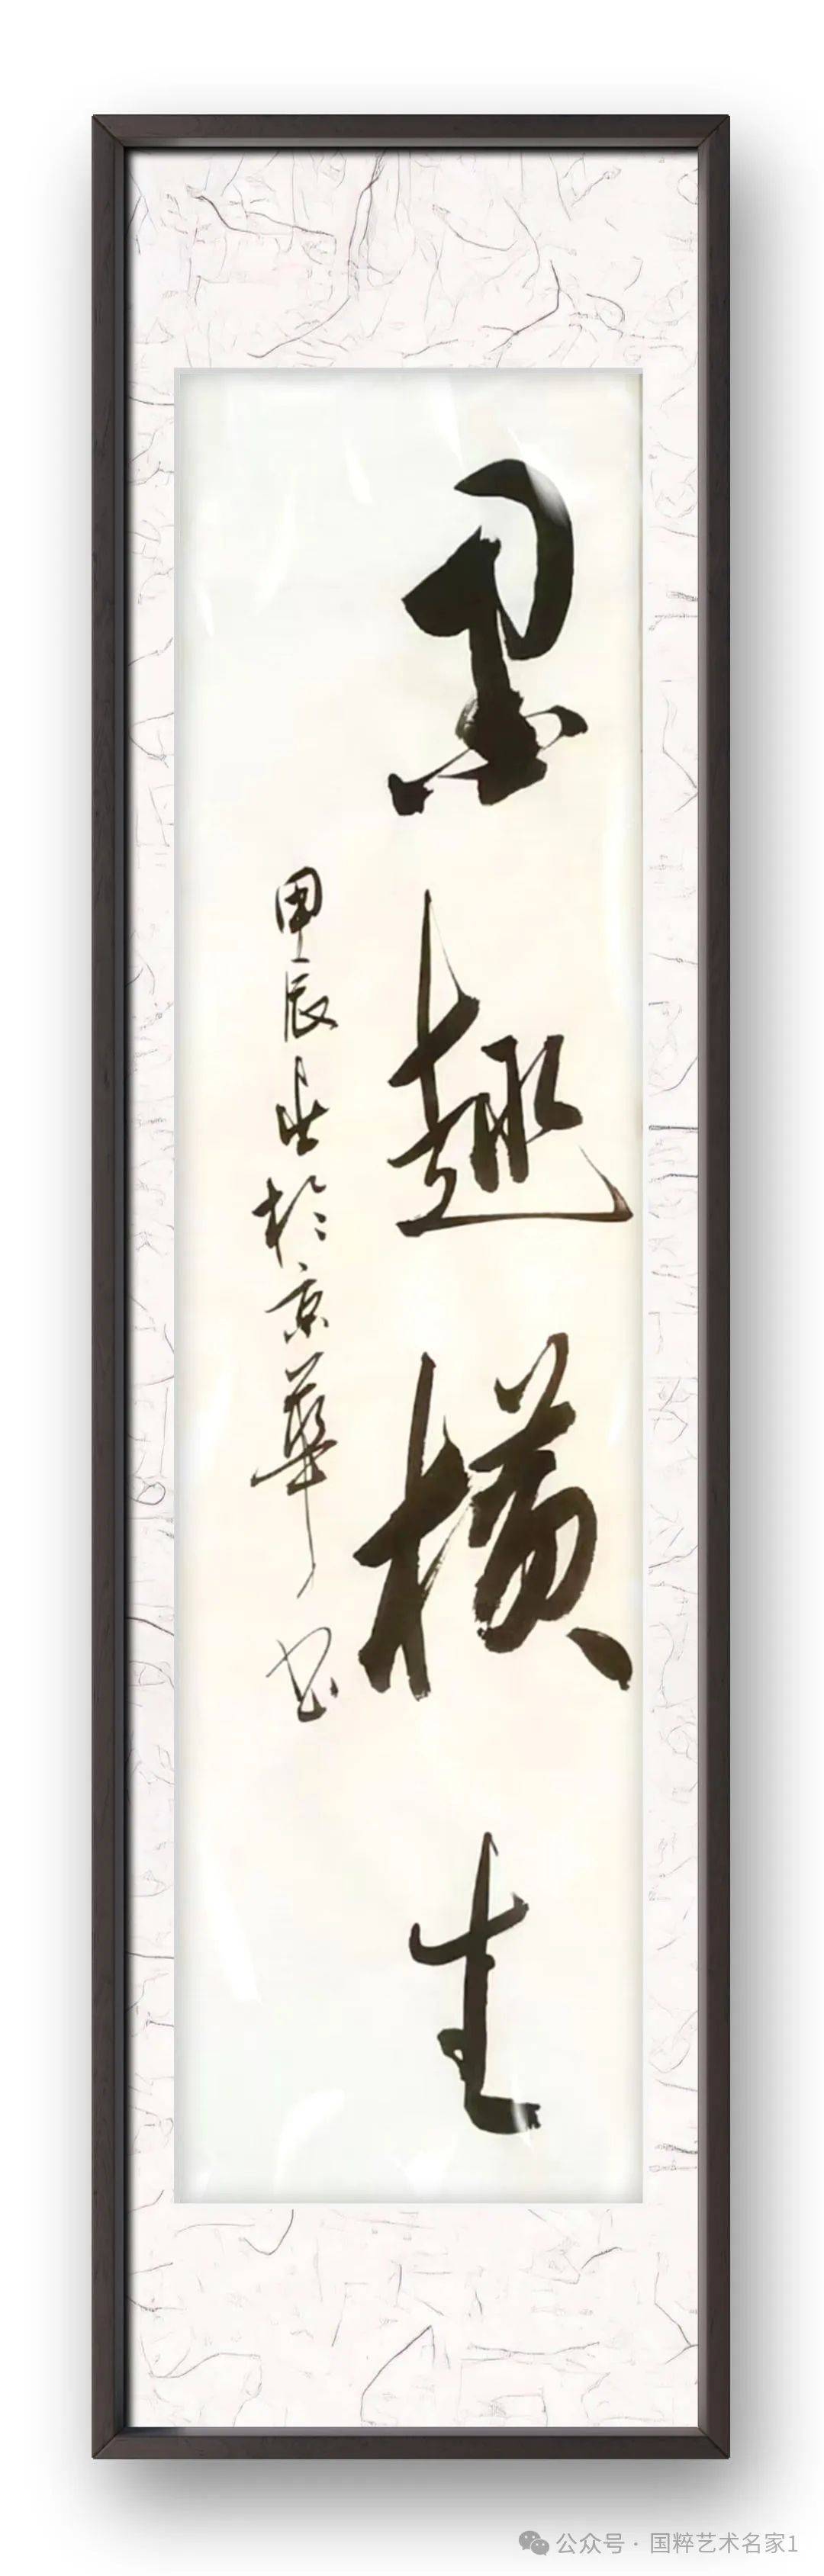 墨趣横生
甲辰春於京華
书
公众号 · 国粹艺术名家1